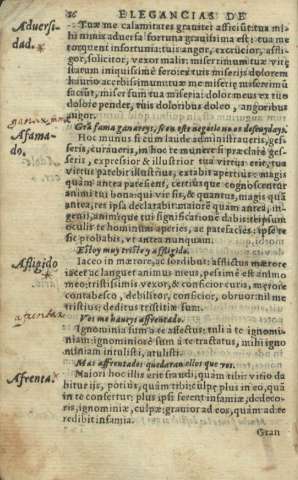 26 ELEGANCIAS DE
Adversidad.
Tuæ me calamitates grauiter afficiũt: tua mi
hi nimis aduersa fortuna grauissima est: tua me
torquent infortunia: tuis angor, excrucior, affli-
gor, sollicitor, vexor malis: miserrimum tuæ vi
tæ statum iniquissime fero: ex tuis miserijs dolorem
haurio acerbissimum: tuæ me miseriæ miserrimũ
faciũt, miser sum tua miseria: dolor meus ex tuo
dolore pendet, tuis doloribus doleo, angoribus
angor.
ganar
Gra fama ganareys, si en este negocio no os descuydays.
Afamado.
Hoc munus si cum laude administraueris, ges-
seris, curaueris, in hoc te munere si præclarè ges-
seris, expressior & illustrior tua virtus erit, tua
virtus patebit illustrius, extabit apertius: magis
quàm antea patefient, certiusque cognoscentur
animi tui bona: quis vir sis, & quantus, magis quã
antea, res ipsa declarabit: maiorẽ quàm antea, in-
genij, animique tui significationẽ dabis: teipsum
oculis te hominum aperies, ac patefacies: ipse te
sic probabis, vt antea nunquam.
Estoy muy triste y affligido.
Affligido
Iaceo in mærore, ac sordibus: afflictus mærore
iacet ac languet animus meus, pessimè est animo
meo: tristissimis vexor, & conficior curis, mærore
contabesco, debilitor, conficior, obruor: nil me
tristius: deditus tristitiæ sum.
afrentar
Vos me haueys affrentado.
Afrenta.
Ignominia sum à te affectus: tuli à te ignomi-
niam: ignominiosè sum à te tractatus, mihi igno
miniam intulisti, attulisti.
Mas affrentados quedaran ellos que yo.
Maiori hoc illis erit fraudi, quàm tibi: vitio da
bitur ijs, potiùs, quàm tibi: culpæ plus in eo, quã
in te consertur: plus ipsi ferent infamiæ, dedeco-
ris, ignominiæ, culpæ: grauior ad eos, quàm ad te
redibit infamia.
Gran